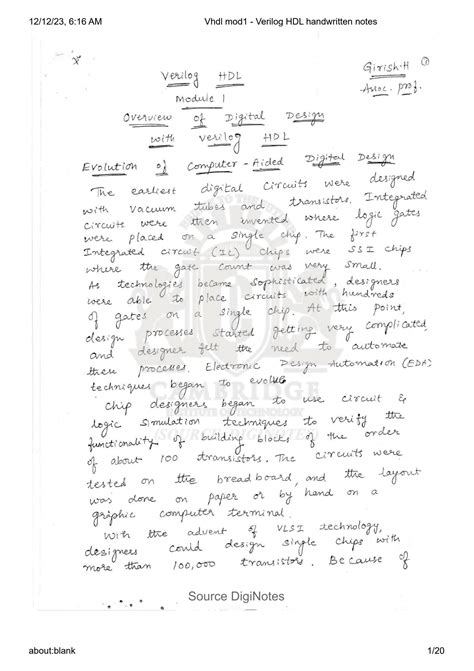 12/12/23, 6:16 AM
Vhdl mod1 - Verilog HDL handwritten notes
Girish.H ①
Assoc. prof.
Verilog HDL
Module 1
Overview of Digital Design
with verilog HDL
Evolution of Computer-Aided Digital Design
The earliest digital circuits were designed
with vacuum tubes and transistors. Integrated
circuits were then invented where logic gates
were placed on a single chip. The first
Integrated circuit (IC) chips were SSI chips
where the gate count was very small.
As technologies became sophisticated, designers
were able to place circuits with hundreds
of gates on a single chip. At this point,
design processes started getting very complicated,
and designer felt the need to automate
these processes. Electronic Design Automation (EDA)
techniques began to evolve
Chip designers began to use circuit &
logic simulation techniques to verify the
functionality of building blocks of the order
of about 100 transistors. The circuits were
tested on the breadboard, and the layout
was done on paper or by hand on a
graphic computer terminal.
With the advent of VLSI technology,
designers could design single chips with
more than 100,000 transistors. Because of
CAMBRIDGE
INSTITUTE OF TECHNOLOGY
(SOURCE DIGINOTES)
Source DigiNotes
about:blank
1/20